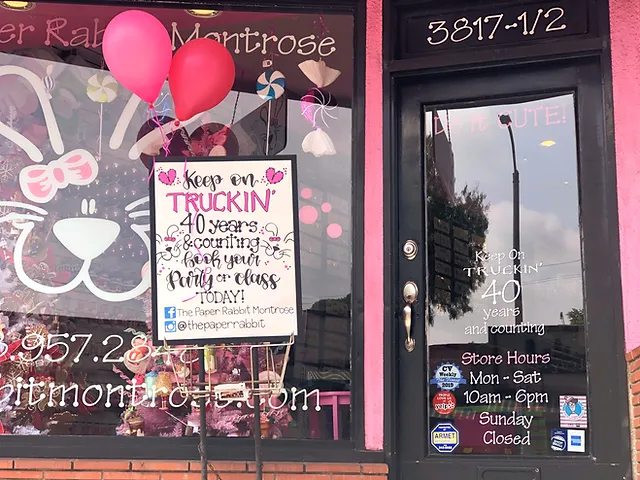 er Rabbit Montrose
3817-1/2
Keep on
TRUCKIN'
40 years
& counting
book your
Party or class
TODAY!
The Paper Rabbit Montrose
@thepaperrabbit
.957.284
bitmontrose.com
CUTE!
Keep On
TRUCKIN'
40
years
and counting
Store Hours
Mon - Sat
10am - 6pm
Sunday
Closed
CV
Weekly
2015
yelp
ARMET